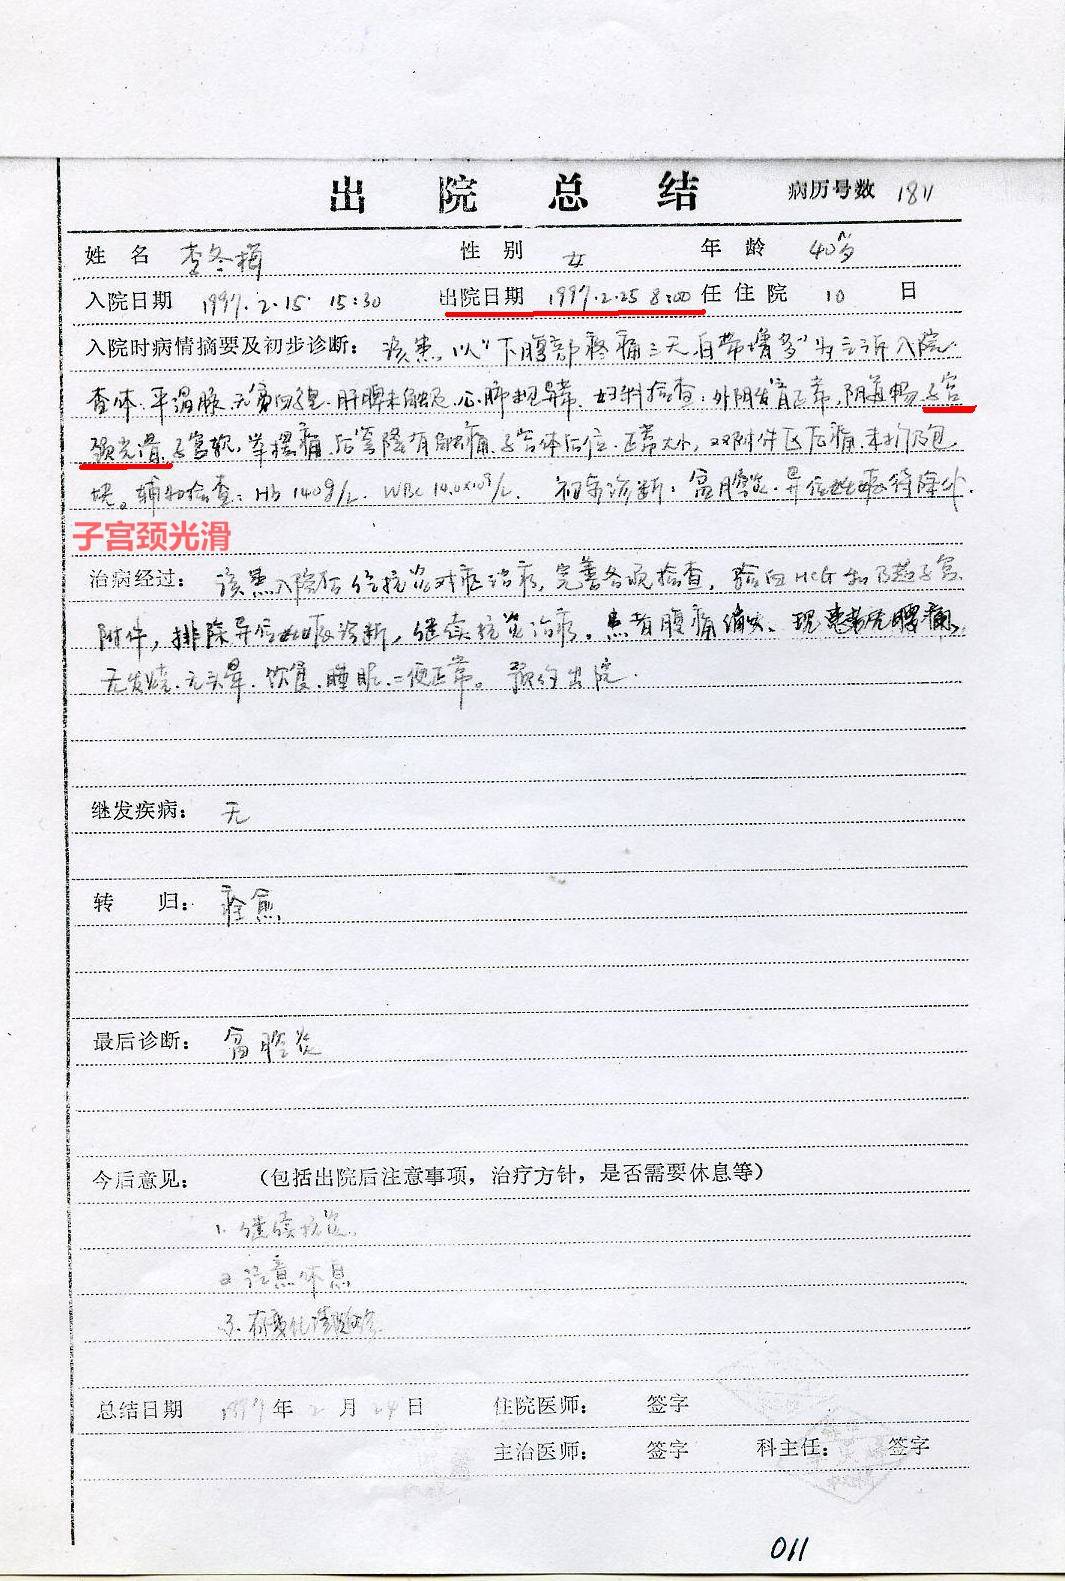 出院总结 病历号数 1811
姓名 李冬梅 性别 女 年龄 40岁
入院日期 1997.2.15 15:30 出院日期 1997.2.25 8:00 任住院 10 日
入院时病情摘要及初步诊断: 该患以“下腹部疼痛三天,白带增多”为主诉入院.
查体.平温脉.肝脾未触及.心肺未见异常.妇科检查:外阴发育正常,阴道畅,子宫
颈光滑,子宫软,举摆痛,后穹隆有触痛,子宫体后位.正常大小,双附件区压痛.未扪及包
块。辅助检查:Hb 140g/L. WBC 14.0×10⁹/L. 初步诊断:盆腔炎.异位妊娠待除外.
子宫颈光滑
治病经过: 该患入院后给抗炎对症治疗,完善各项检查,验血HCG 及超子宫.
附件,排除异位妊娠诊断,继续抗炎治疗.患者腹痛消失、现患者无腰痛、
无发烧.无头晕.饮食.睡眠.二便正常。预约出院.
继发疾病: 无
转归: 痊愈
最后诊断: 盆腔炎
今后意见: (包括出院后注意事项,治疗方针,是否需要休息等)
1.继续抗炎.
2.注意休息
3.有变化请随诊.
总结日期 1997年2月24日 住院医师: 签字
主治医师: 签字 科主任: 签字
011